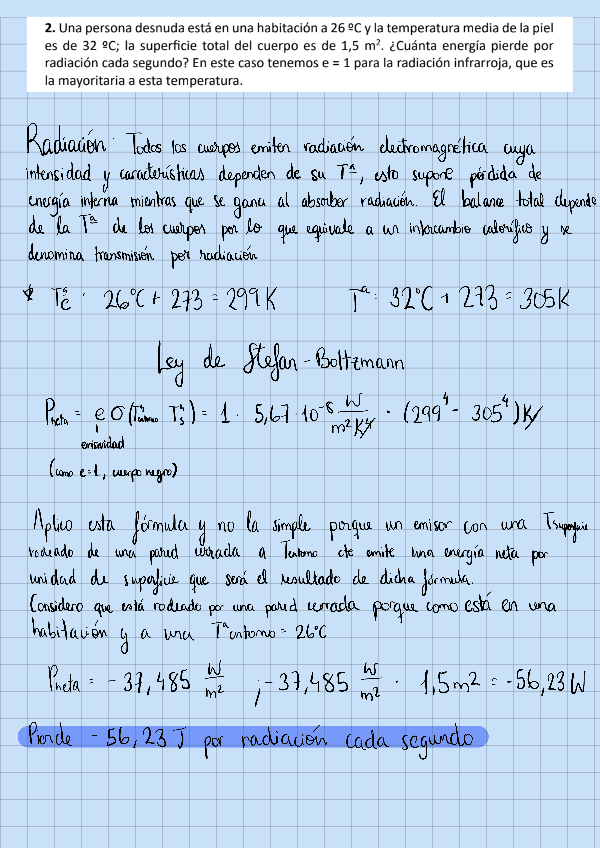 2. Una persona desnuda está en una habitación a 26 ºC y la temperatura media de la piel
es de 32 ºC; la superficie total del cuerpo es de 1,5 m². ¿Cuánta energía pierde por
radiación cada segundo? En este caso tenemos e = 1 para la radiación infrarroja, que es
la mayoritaria a esta temperatura.
Radiación: Todos los cuerpos emiten radiación electromagnética cuya
intensidad y características dependen de su Tª, esto supone pérdida de
energía interna mientras que se gana al absorber radiación. El balance total depende
de la Tª de los cuerpos por lo que equivale a un intercambio calorífico y se
denomina transmisión por radiación
26ºC + 273 = 299 K Tª: 32ºC + 273 = 305 K
Ley de Stefan-Boltzmann
Pneta = e σ (T⁴entorno T⁴s) = 1 · 5,67 · 10⁻⁸ W/m² K⁴ · (299⁴ - 305⁴) K⁴
emisividad
(como e=1, cuerpo negro)
Aplico esta fórmula y no la simple porque un emisor con una Tsuperficie
rodeado de una pared cerrada a Tentorno cte emite una energía neta por
unidad de superficie que será el resultado de dicha fórmula.
Considero que está rodeado por una pared cerrada porque como está en una
habitación y a una Tª entorno = 26ºC
Pneta = - 37,485 W/m² ; - 37,485 W/m² · 1,5 m² = -56,23 W
Pierde - 56,23 J por radiación cada segundo